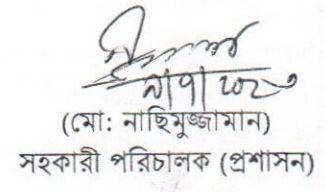 (মো: নাছিমুজ্জামান)
সহকারী পরিচালক (প্রশাসন)